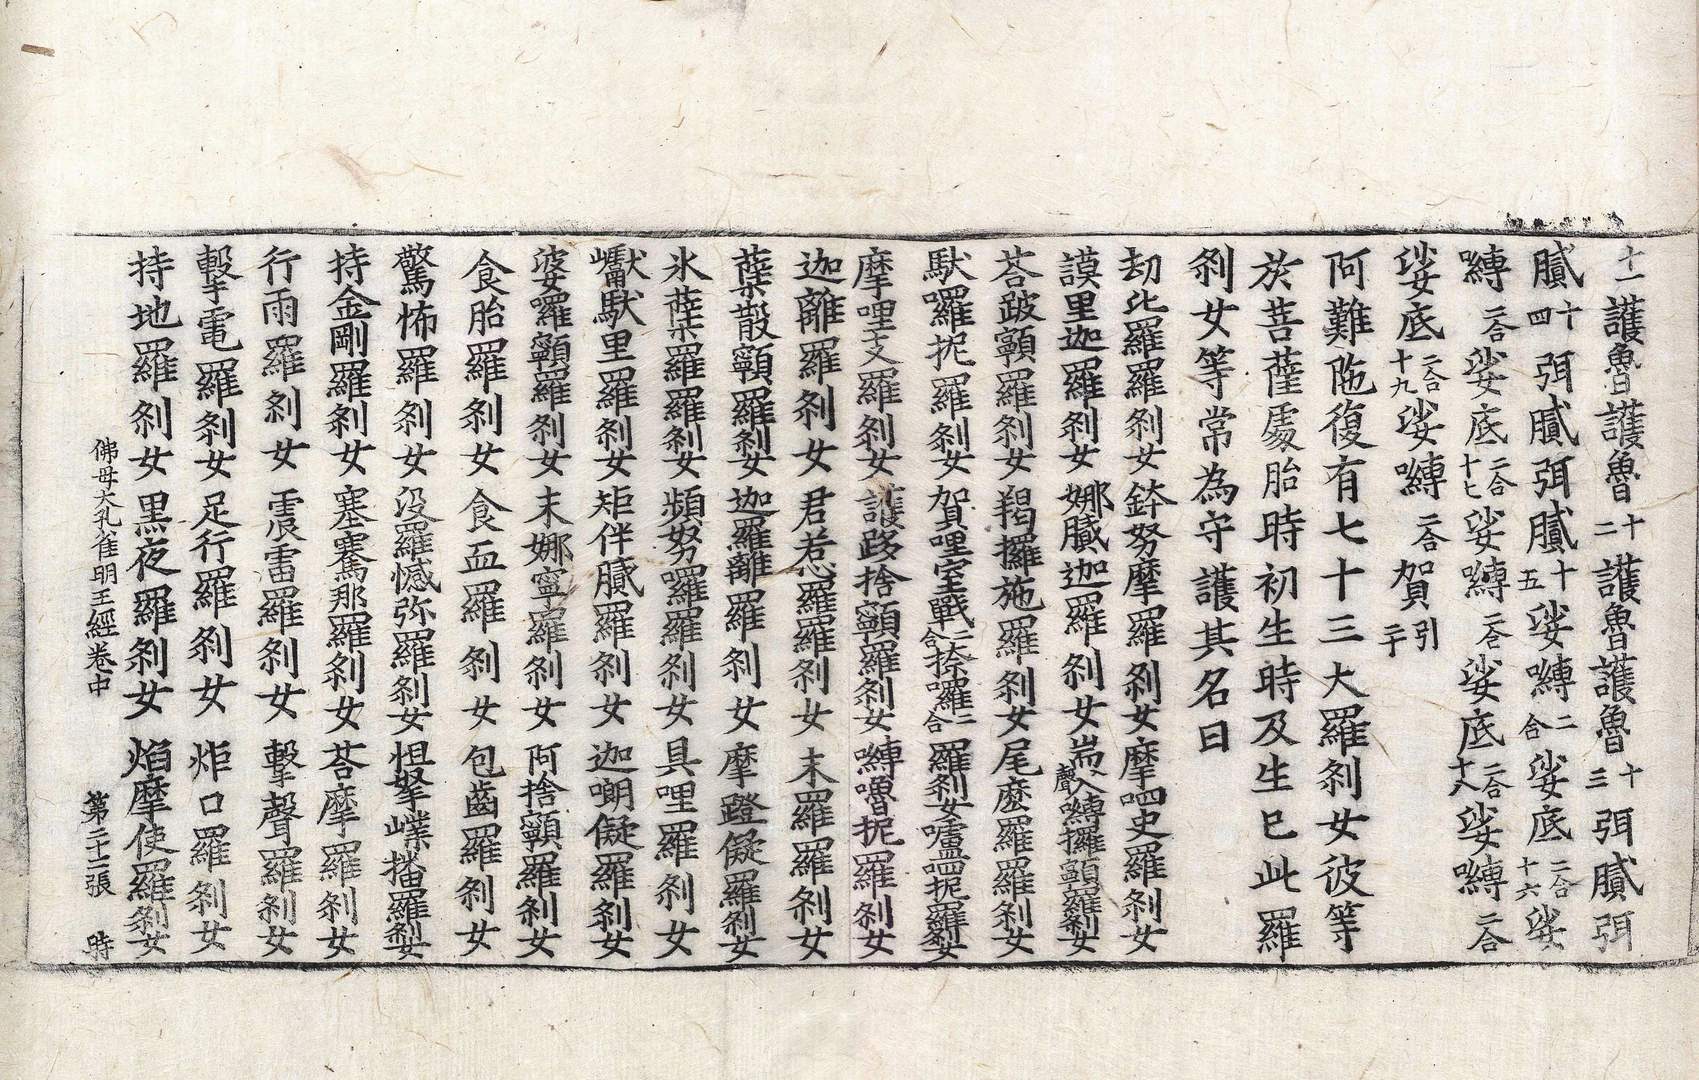 十一護魯護魯十二護魯護魯十三弭膩弭
膩十四弭膩弭膩十五娑嚩二合娑底二合十六娑
嚩二合娑底二合十七娑嚩二合娑底二合十八娑嚩二合
娑底二合十九娑嚩二合賀引二十
阿難陁復有七十三大羅剎女彼等
於菩薩處胎時初生時及生巳此羅
剎女等常為守護其名曰
劫比羅羅剎女鉢努摩羅剎女摩呬史羅剎女
謨里迦羅剎女娜膩迦羅剎女嚩攞顙羅剎女
荅跛顙羅剎女羯攞施羅剎女尾麼羅羅剎女
馱羅抳羅剎女賀哩室戰二合捺囉二合羅剎女嚧呬抳羅剎女
摩哩支羅剎女護跢捨顙羅剎女嚩嚕抳羅剎女
迦離羅剎女君惹羅羅剎女末羅羅剎女
蘗散顙羅剎女迦羅離羅剎女摩蹬儗羅剎女
氷蘗羅羅剎女頻努囉羅剎女具哩羅剎女
巘馱里羅剎女矩伴膩羅剎女迦嘲儗羅剎女
婆囉顙羅剎女末娜寧羅剎女阿捨顙羅剎女
食胎羅剎女食血羅剎女包齒羅剎女
驚怖羅剎女沒羅憾弥羅剎女怛拏巕播羅剎女
持金剛羅剎女塞騫那羅剎女荅摩羅剎女
行雨羅剎女震雷羅剎女擊聲羅剎女
擊電羅剎女足行羅剎女炬口羅剎女
持地羅剎女黑夜羅剎女焰摩使羅剎女
佛母大孔雀明王經卷中 第二十二張 時